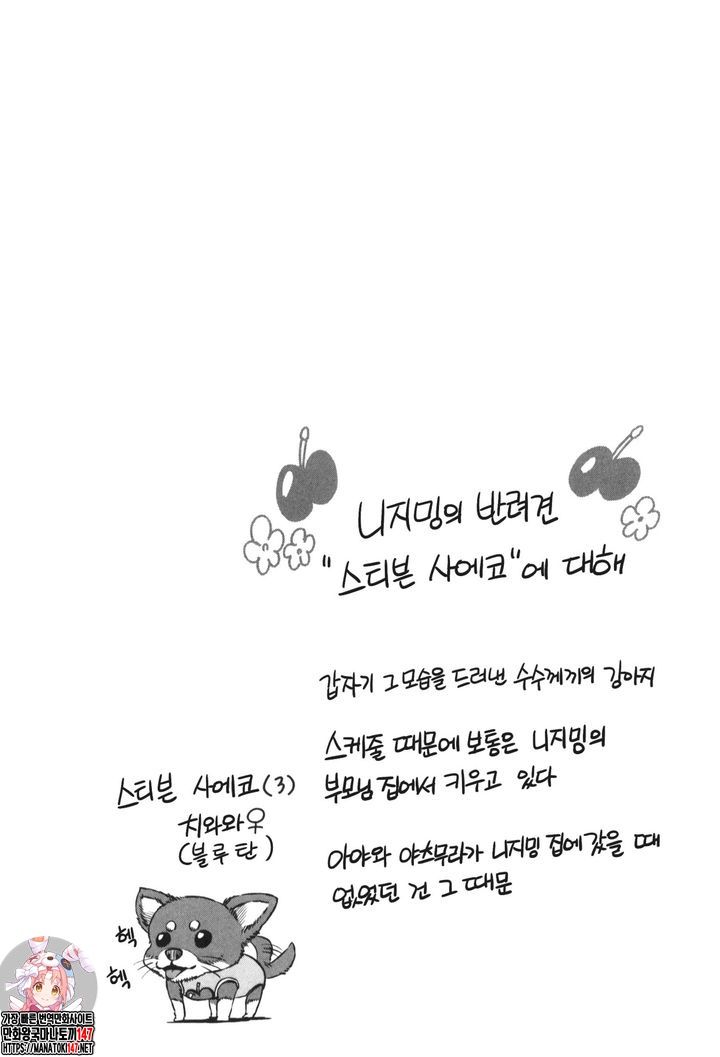 니지밍의 반려견
"스티븐 사에코"에 대해
갑자기 그 모습을 드러낸 수수께끼의 강아지
스케줄 때문에 보통은 니지밍의
부모님 집에서 키우고 있다
아야와 야츠무라가 니지밍 집에 갔을 때
없었던 건 그 때문
스티븐 사에코(3)
치와와♀
(블루탄)
헥
헥
가장 빠른 번역만화사이트
만화왕국마나토끼147
HTTPS://MANATOKI147.NET